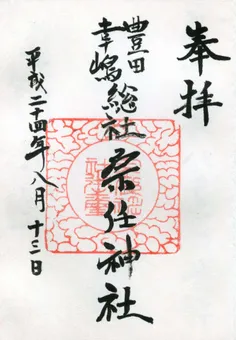 奉拝
豊田
幸嶋
総社桑任神社
平成二十四年八月十三日